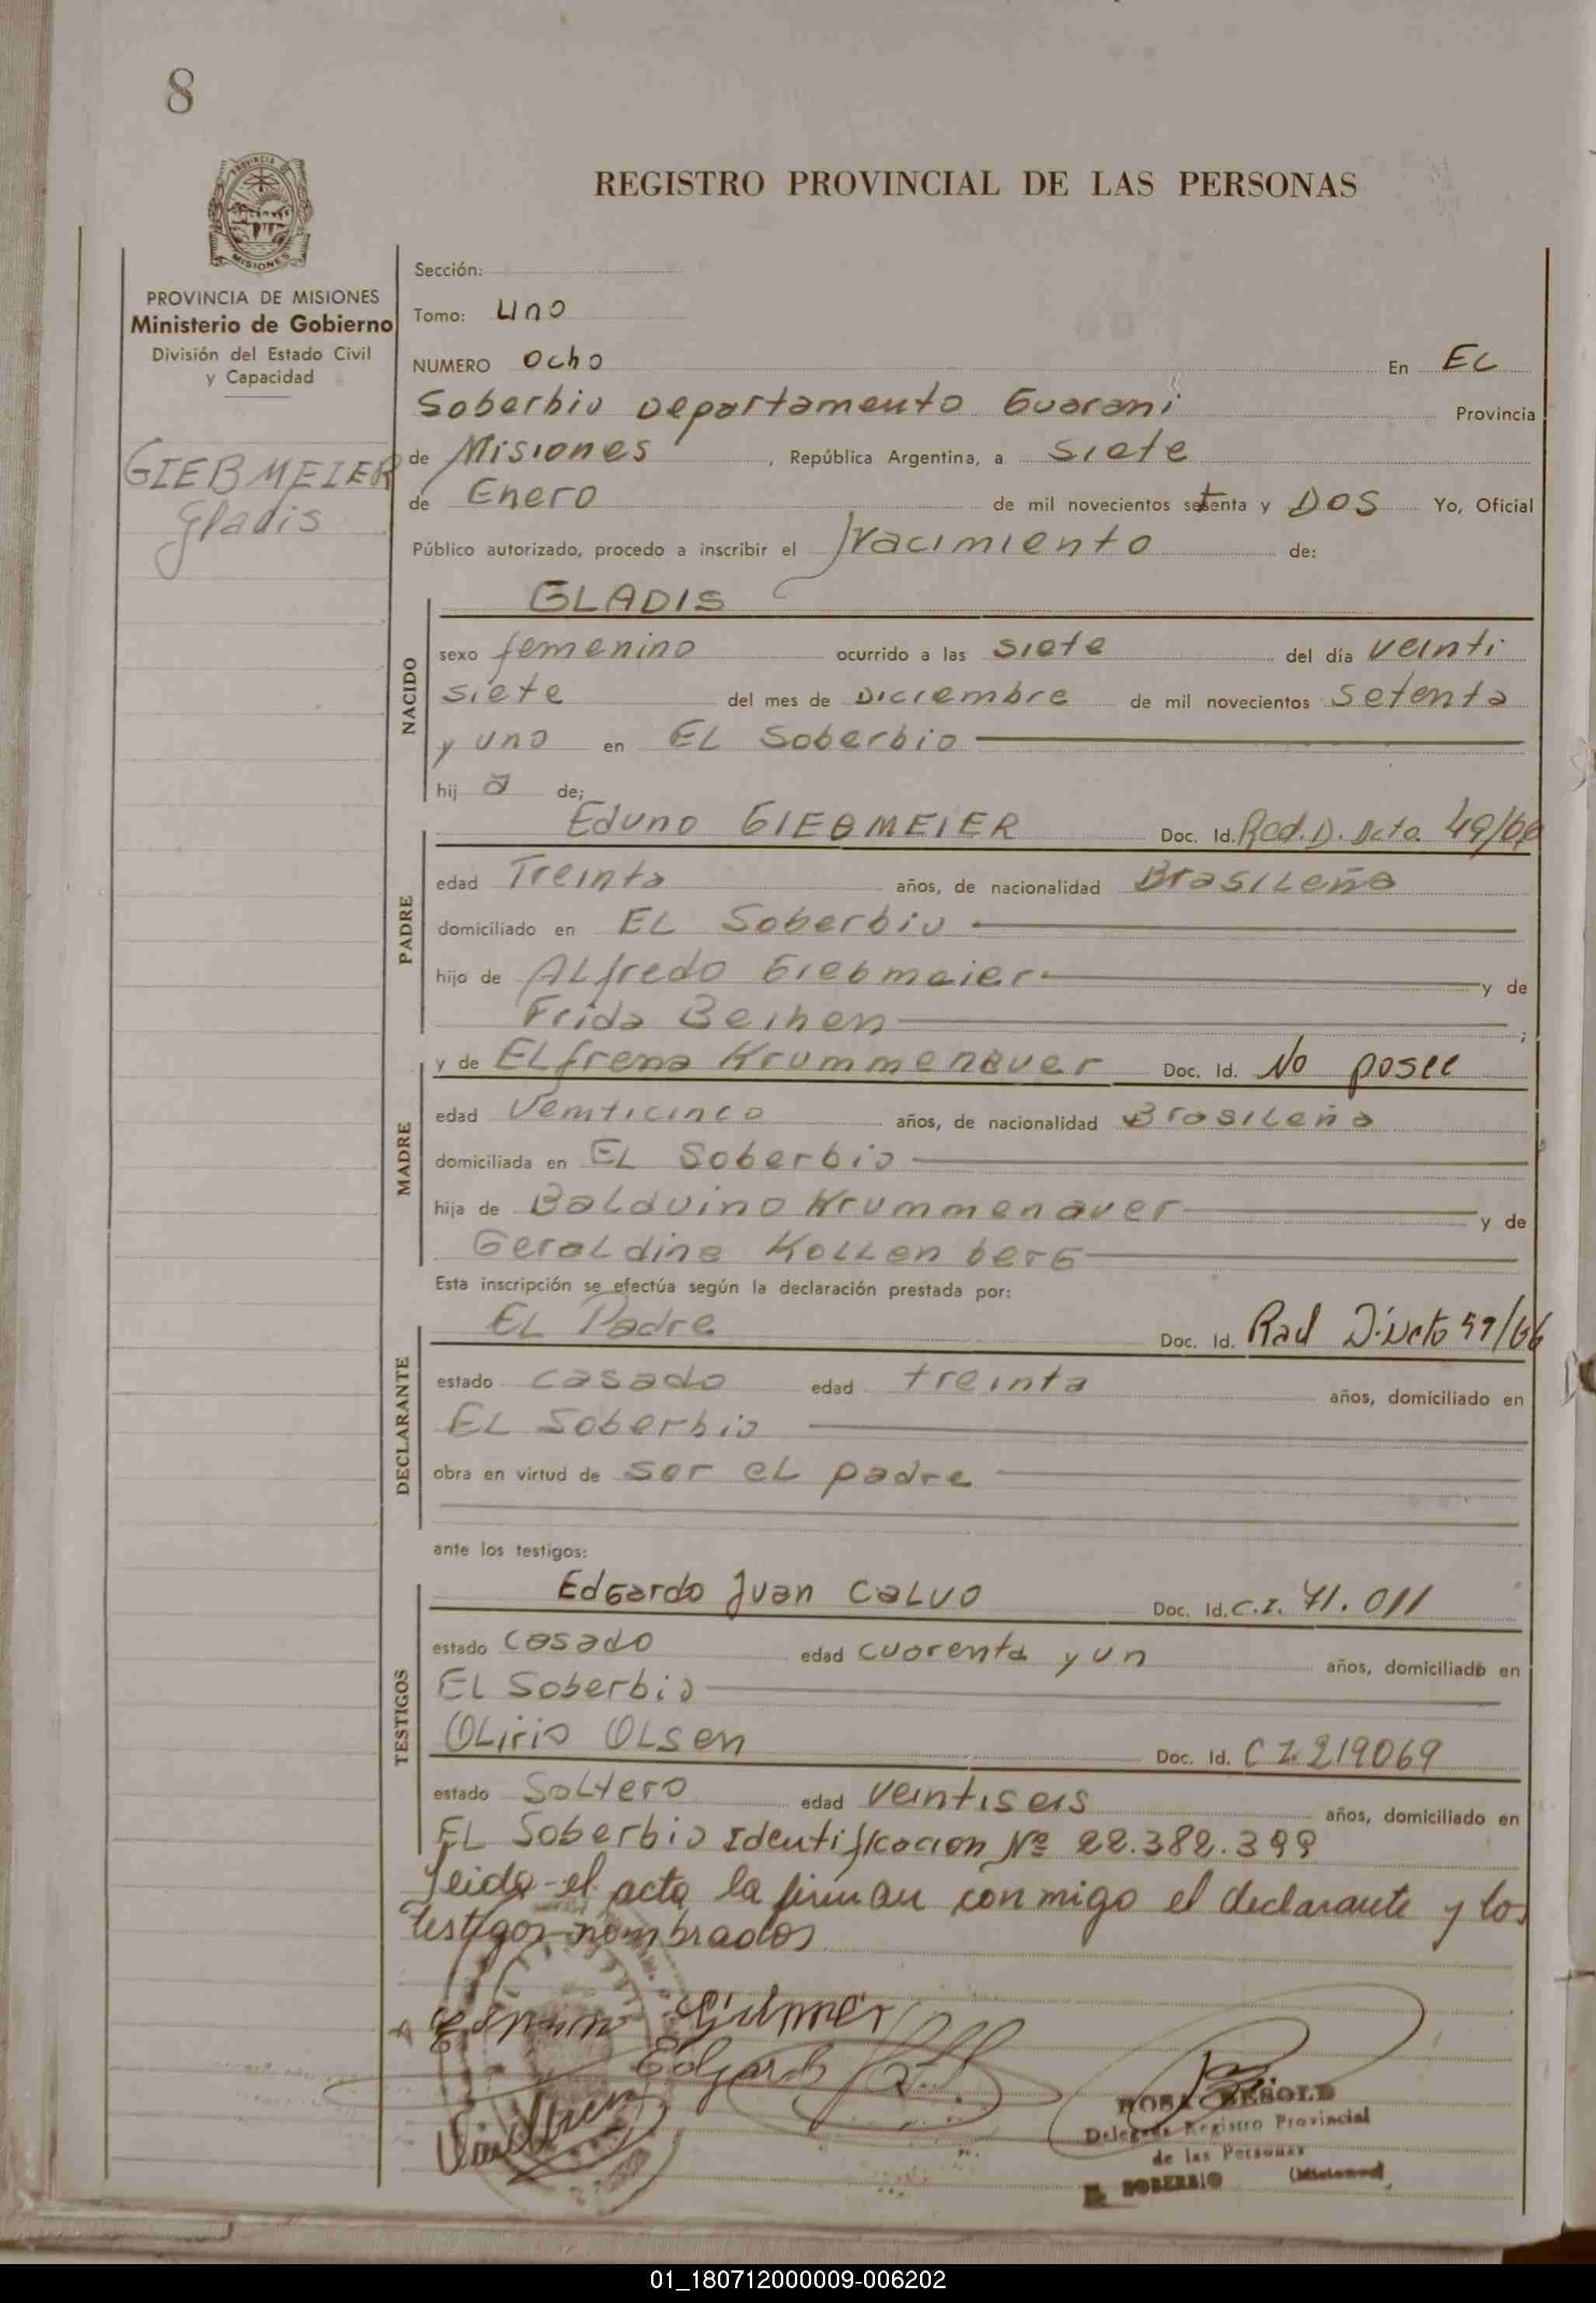 8
REGISTRO PROVINCIAL DE LAS PERSONAS
PROVINCIA DE MISIONES
Ministerio de Gobierno
División del Estado Civil
y Capacidad
GIEBMEIER
Gladis
Sección:
Tomo: Uno
NUMERO Ocho En EL
Soberbio Departamento Guarani Provincia
de Misiones, República Argentina, a siete
de Enero de mil novecientos setenta y DOS Yo, Oficial
Público autorizado, procedo a inscribir el Nacimiento de:
NACIDO
GLADIS
sexo femenino ocurrido a las siete del día veinti
siete del mes de Diciembre de mil novecientos setenta
y uno en EL Soberbio
hij a de;
PADRE
Eduno GIEBMEIER Doc. Id. Rad. D. Dcto. 49/66
edad Treinta años, de nacionalidad Brasileña
domiciliado en EL Soberbio
hijo de ALfredo Giebmeier y de
Frida Beihen ;
MADRE
y de ELfrena Krummenauer Doc. Id. No posee
edad Veinticinco años, de nacionalidad Brasileña
domiciliada en EL Soberbio
hija de Balduino Krummenauer y de
Geraldina Kollenberg
Esta inscripción se efectúa según la declaración prestada por:
DECLARANTE
EL Padre Doc. Id. Rad D. Dcto /66
estado casado edad treinta años, domiciliado en
EL Soberbio
obra en virtud de ser el padre
ante los testigos:
TESTIGOS
Edgardo Juan CALVO Doc. Id. C.I. 71.011
estado casado edad cuarenta y un años, domiciliado en
EL Soberbio
Olirio Olsen Doc. Id. C I. 219069
estado Soltero edad veintiseis años, domiciliado en
EL Soberbio Identificacion Nº 22.382.399
Leida el acta la firman conmigo el declarante y los
testigos nombrados
Edgardo
ROSA BESOLD
Delegada Registro Provincial
de las Personas
EL SOBERBIO (Misiones)
01_180712000009-006202